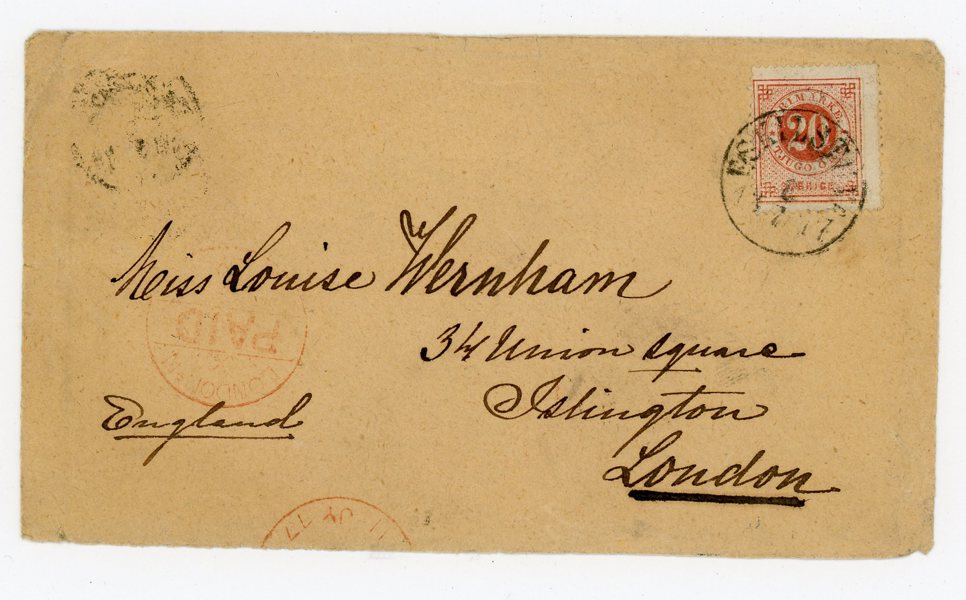 FRIMÄRKE
20
TJUGO ÖRE
SVERIGE
ESKILSTUNA
7
Miss Louise Wernham
34 Union square
Islington
London
England
PAID
LONDON
JY 17